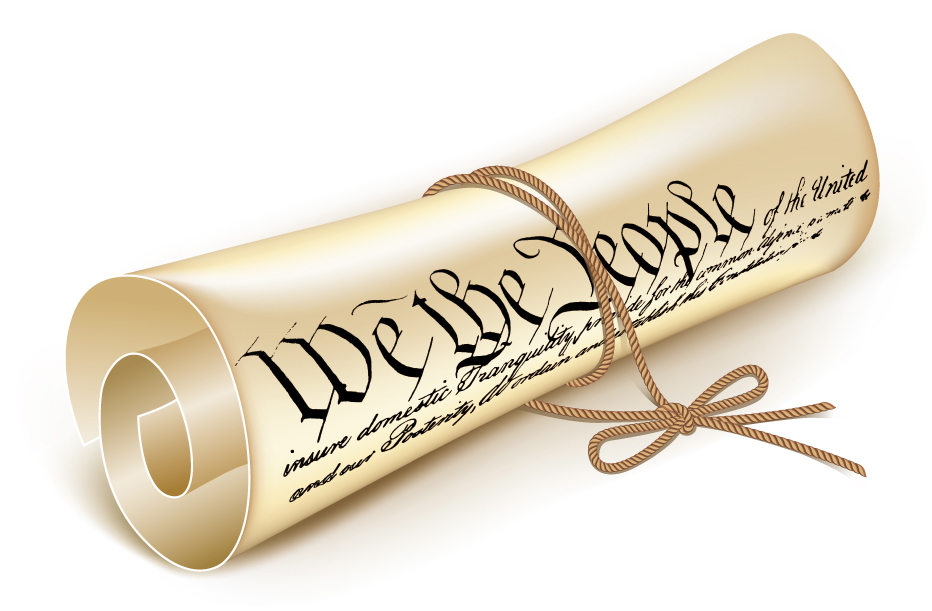 We the People of the United
insure domestic Tranquility, provide for the common defence, promote
and our Posterity, do ordain and establish this Constitution